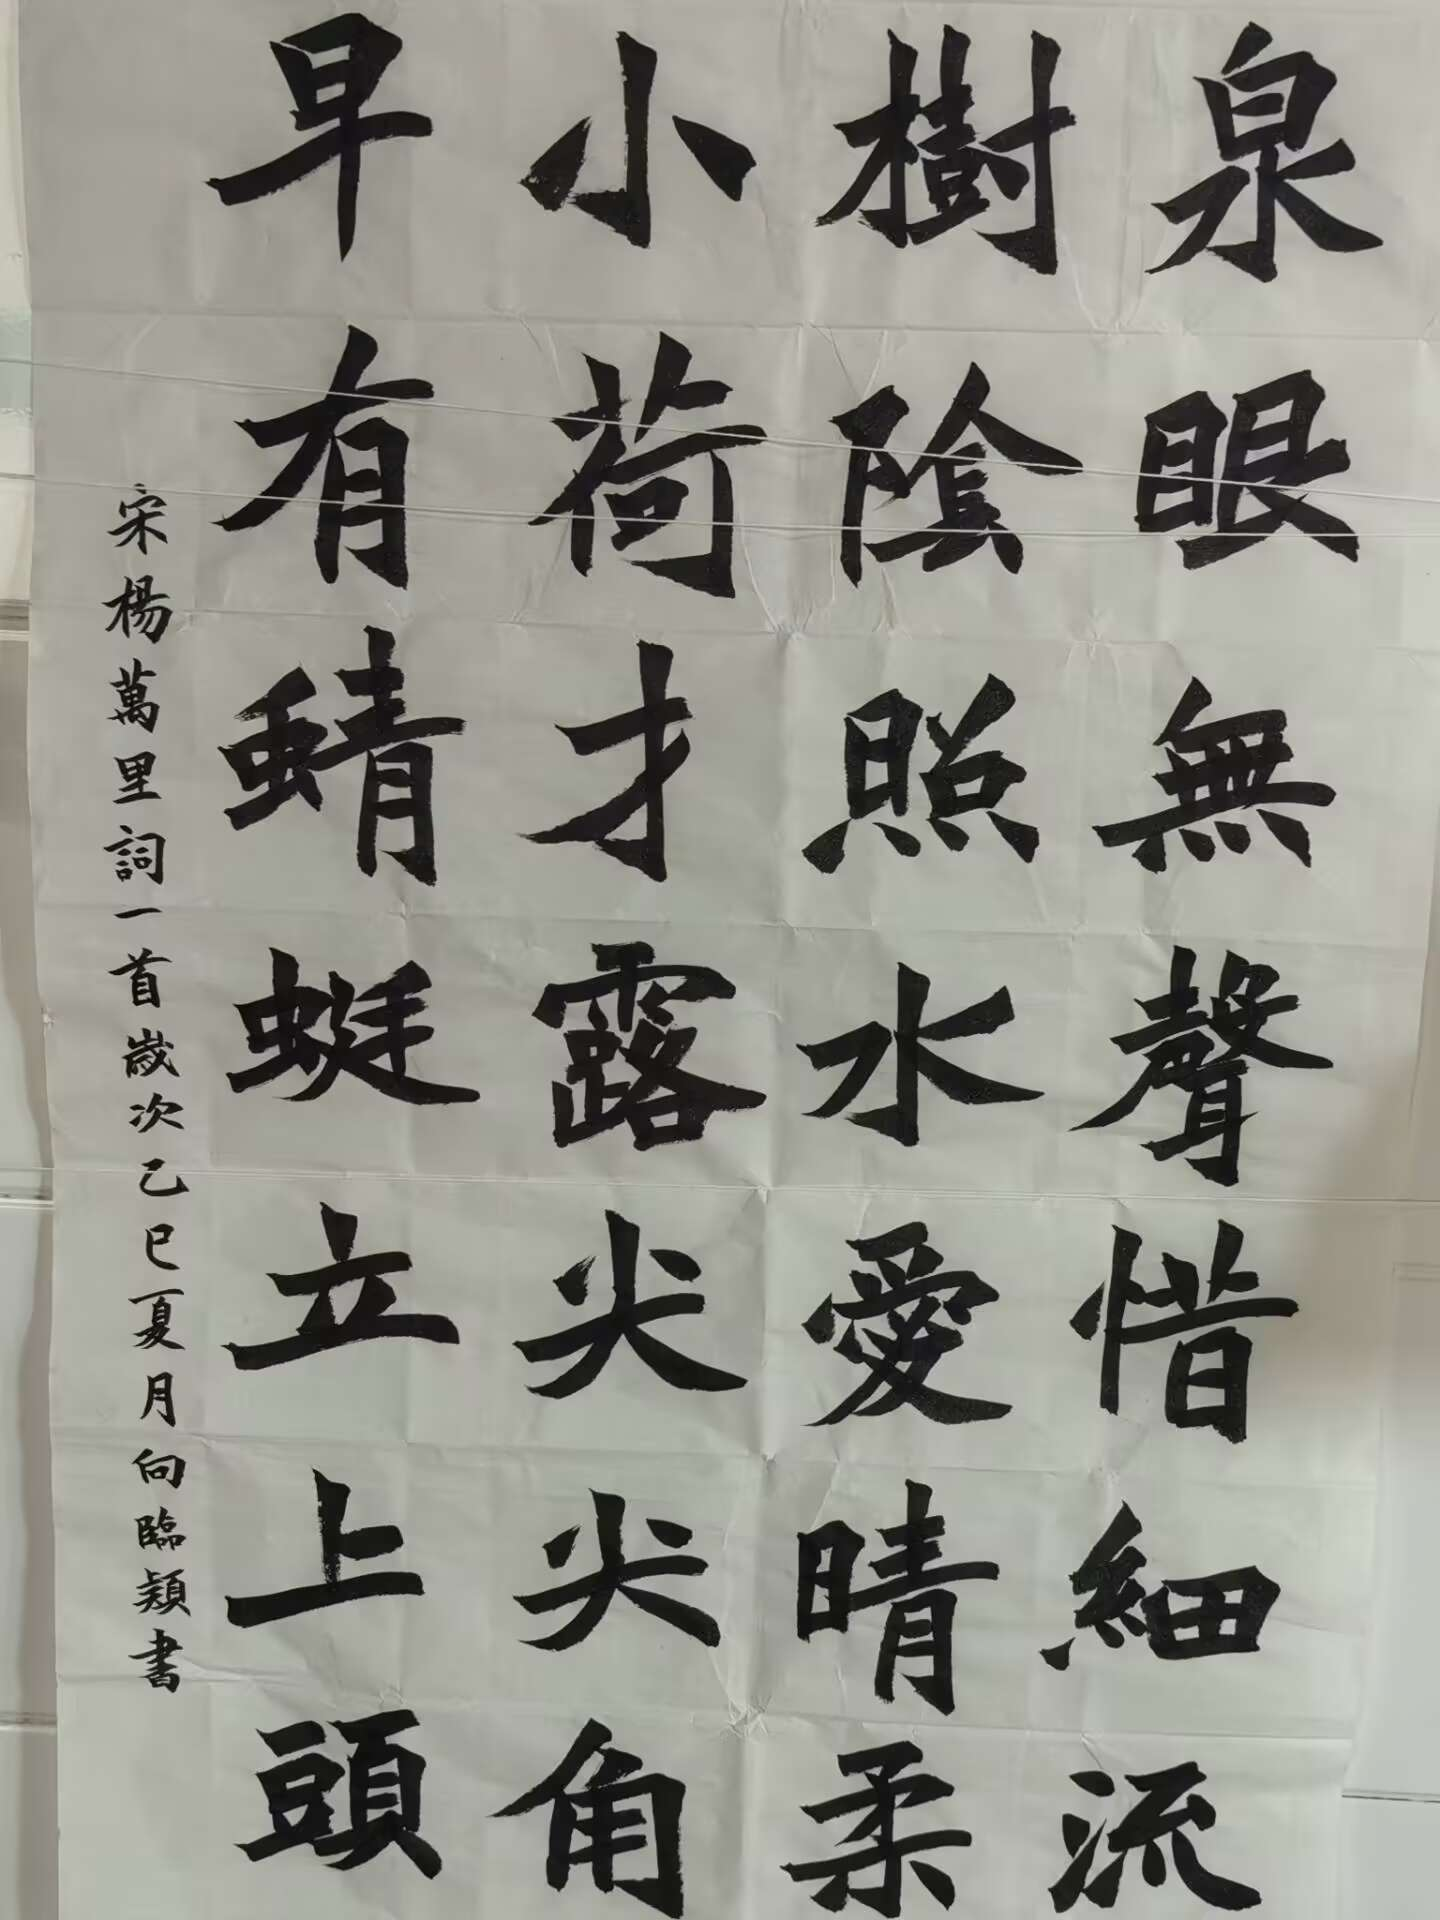 泉眼無聲惜細流
樹陰照水愛晴柔
小荷才露尖尖角
早有蜻蜓立上頭
宋楊萬里詞一首歲次乙巳夏月向臨穎書